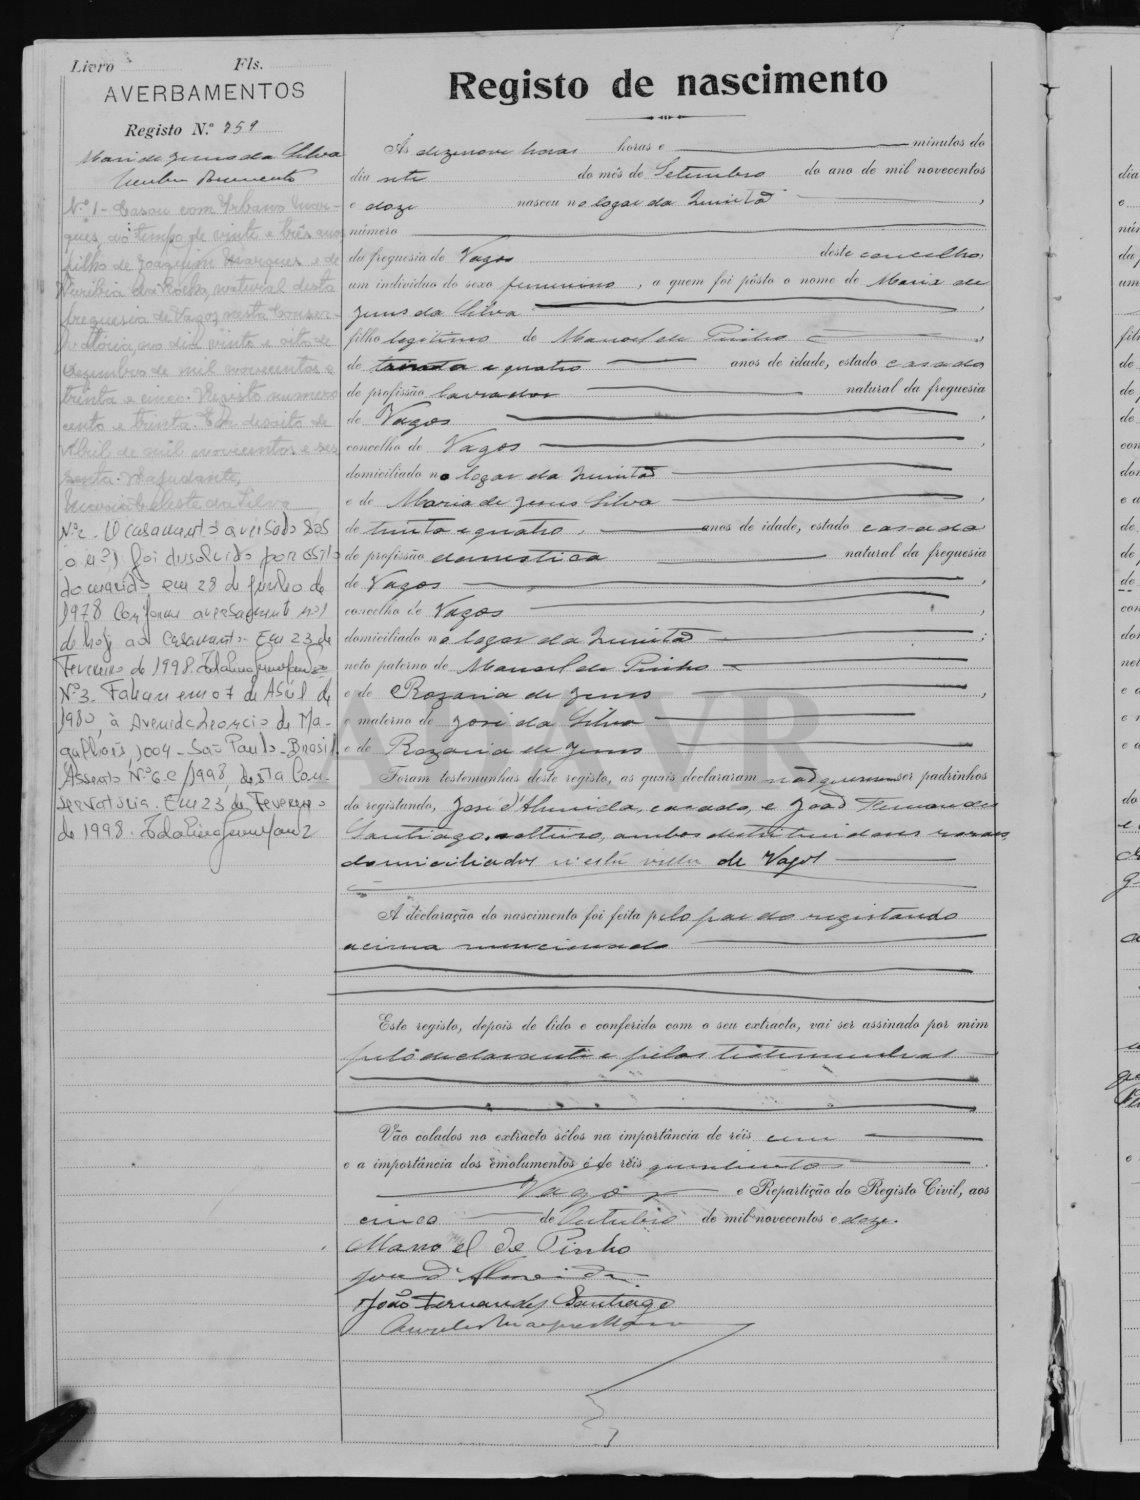 Livro Fls.
AVERBAMENTOS
Registo N.º 759
Maria de Jesus da Silva
N.º 1 - Casou com Urbano Mar-
ques, do tempo de vinte e três anos
filho de Joaquim Marques e de
da Rocha, natural desta
freguesia de Vagos, nesta Conser-
vatória, no dia vinte e oito de
dezembro de mil novecentos e
trinta e cinco. Registo numero
cento e trinta. Em dezoito de
Abril de mil novecentos e ses
senta. A ajudante,
Celeste da Silva
Nº2 - O casamento averbado sob
o nº1 foi dissolvido por óbito
do marido em 28 de Junho de
1978 Conforme averbamento nº1
de hoje ao casamento. Em 23 de
Fevereiro de 1998.
Nº3 - Faleceu em 07 de Abril de
1980, à Avenida Leoncio de Ma-
galhães, 1004 - São Paulo - Brasil.
Assento Nº6-C/1998, desta Con-
servatória. Em 23 de Fevereiro
de 1998.
Registo de nascimento
Ás dezenove horas horas e minutos do
dia sete do mês de Setembro do ano de mil novecentos
e doze nasceu no logar da
número
da freguesia de Vagos deste concelho,
um individuo do sexo feminino, a quem foi pôsto o nome de Maria de
Jesus da Silva
filho legitimo de Manoel de Pinho
de trinta e quatro anos de idade, estado casado
de profissão lavrador natural da freguesia
de Vagos
concelho de Vagos
domiciliado no logar da
e de Maria de Jesus Silva
de trinta e quatro anos de idade, estado casada
de profissão domestica natural da freguesia
de Vagos
concelho de Vagos
domiciliado no logar da
neto paterno de Manoel de Pinho
e de Rozaria de Jesus
e materno de José da Silva
e de Rozaria de Jesus
Foram testemunhas deste registo, as quais declararam não quererem ser padrinhos
do registando, José d'Almeida, casado, e João Fernandes
Santiago, solteiro, ambos
domiciliados n'esta villa de Vagos
A declaração do nascimento foi feita pelo pae do registando
acima mencionado
Este registo, depois de lido e conferido com o seu extracto, vai ser assinado por mim
pelo declarante e pelas testemunhas
Vão colados no extracto sêlos na importância de réis cem
e a importância dos emolumentos é de réis quinhentos
Vagos e Repartição do Registo Civil, aos
cinco de Outubro de mil novecentos e doze.
Manoel de Pinho
José d'Almeida
João Fernandes Santiago
ADAVR